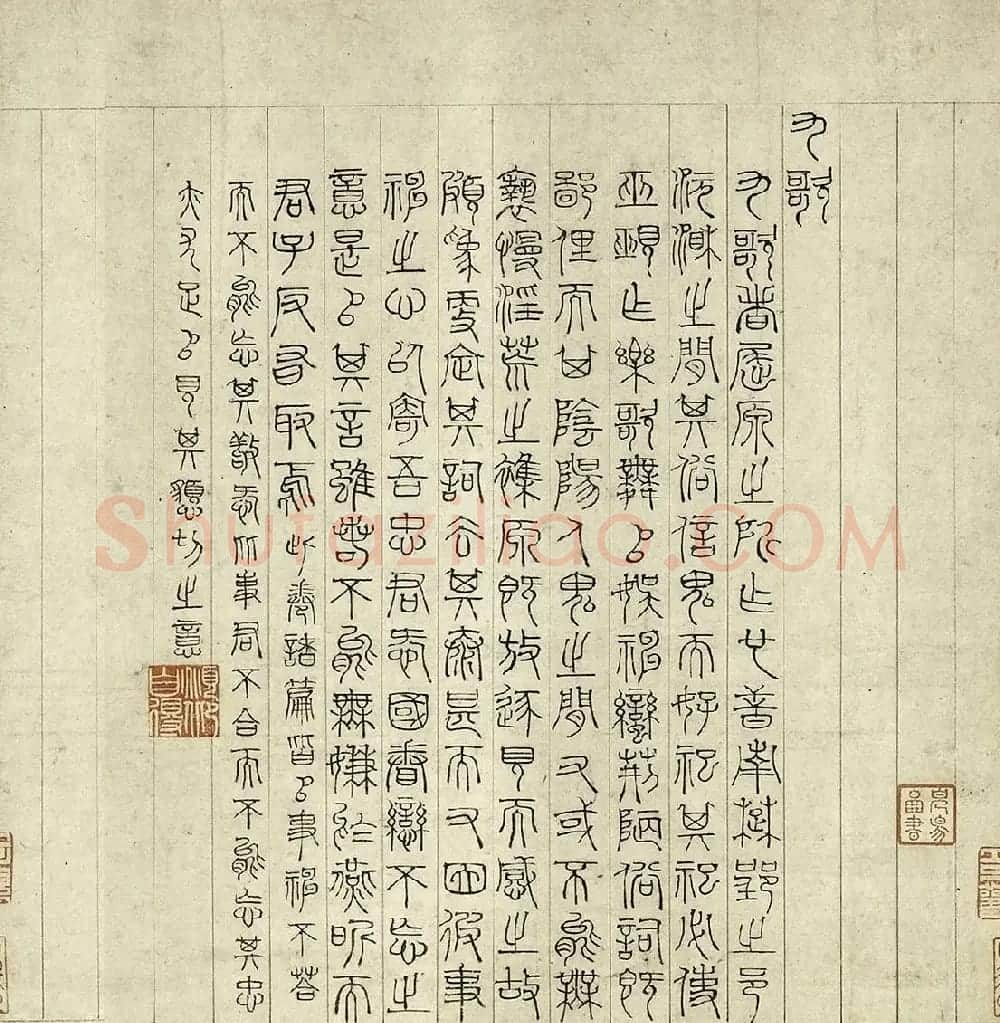 九歌
九歌者屈原之所作也昔南楚郢之邑
沅湘之間其俗信鬼而好祀其祀必使
巫覡作樂歌舞以娛神蠻荊陋俗詞既
鄙俚而其陰陽人鬼之間又或不能無
褻慢淫荒之雜原既放逐見而感之故
頗為更定其詞去其泰甚而又因彼事
神之心以寄吾忠君愛國眷戀不忘之
意是以其言雖若不能無嫌於燕昵而
君子反有取焉此卷諸篇皆以事神不答
而不能忘其敬愛比事君不合而不能忘其忠
赤尤足以見其懇切之意
Shufaziliao.COM